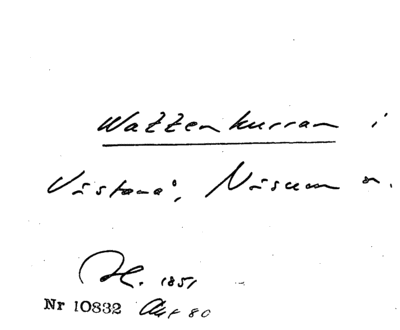 Wattenkurran i
Västanå, Näsum s.
H. 1851
Nr 10832 Akt 80